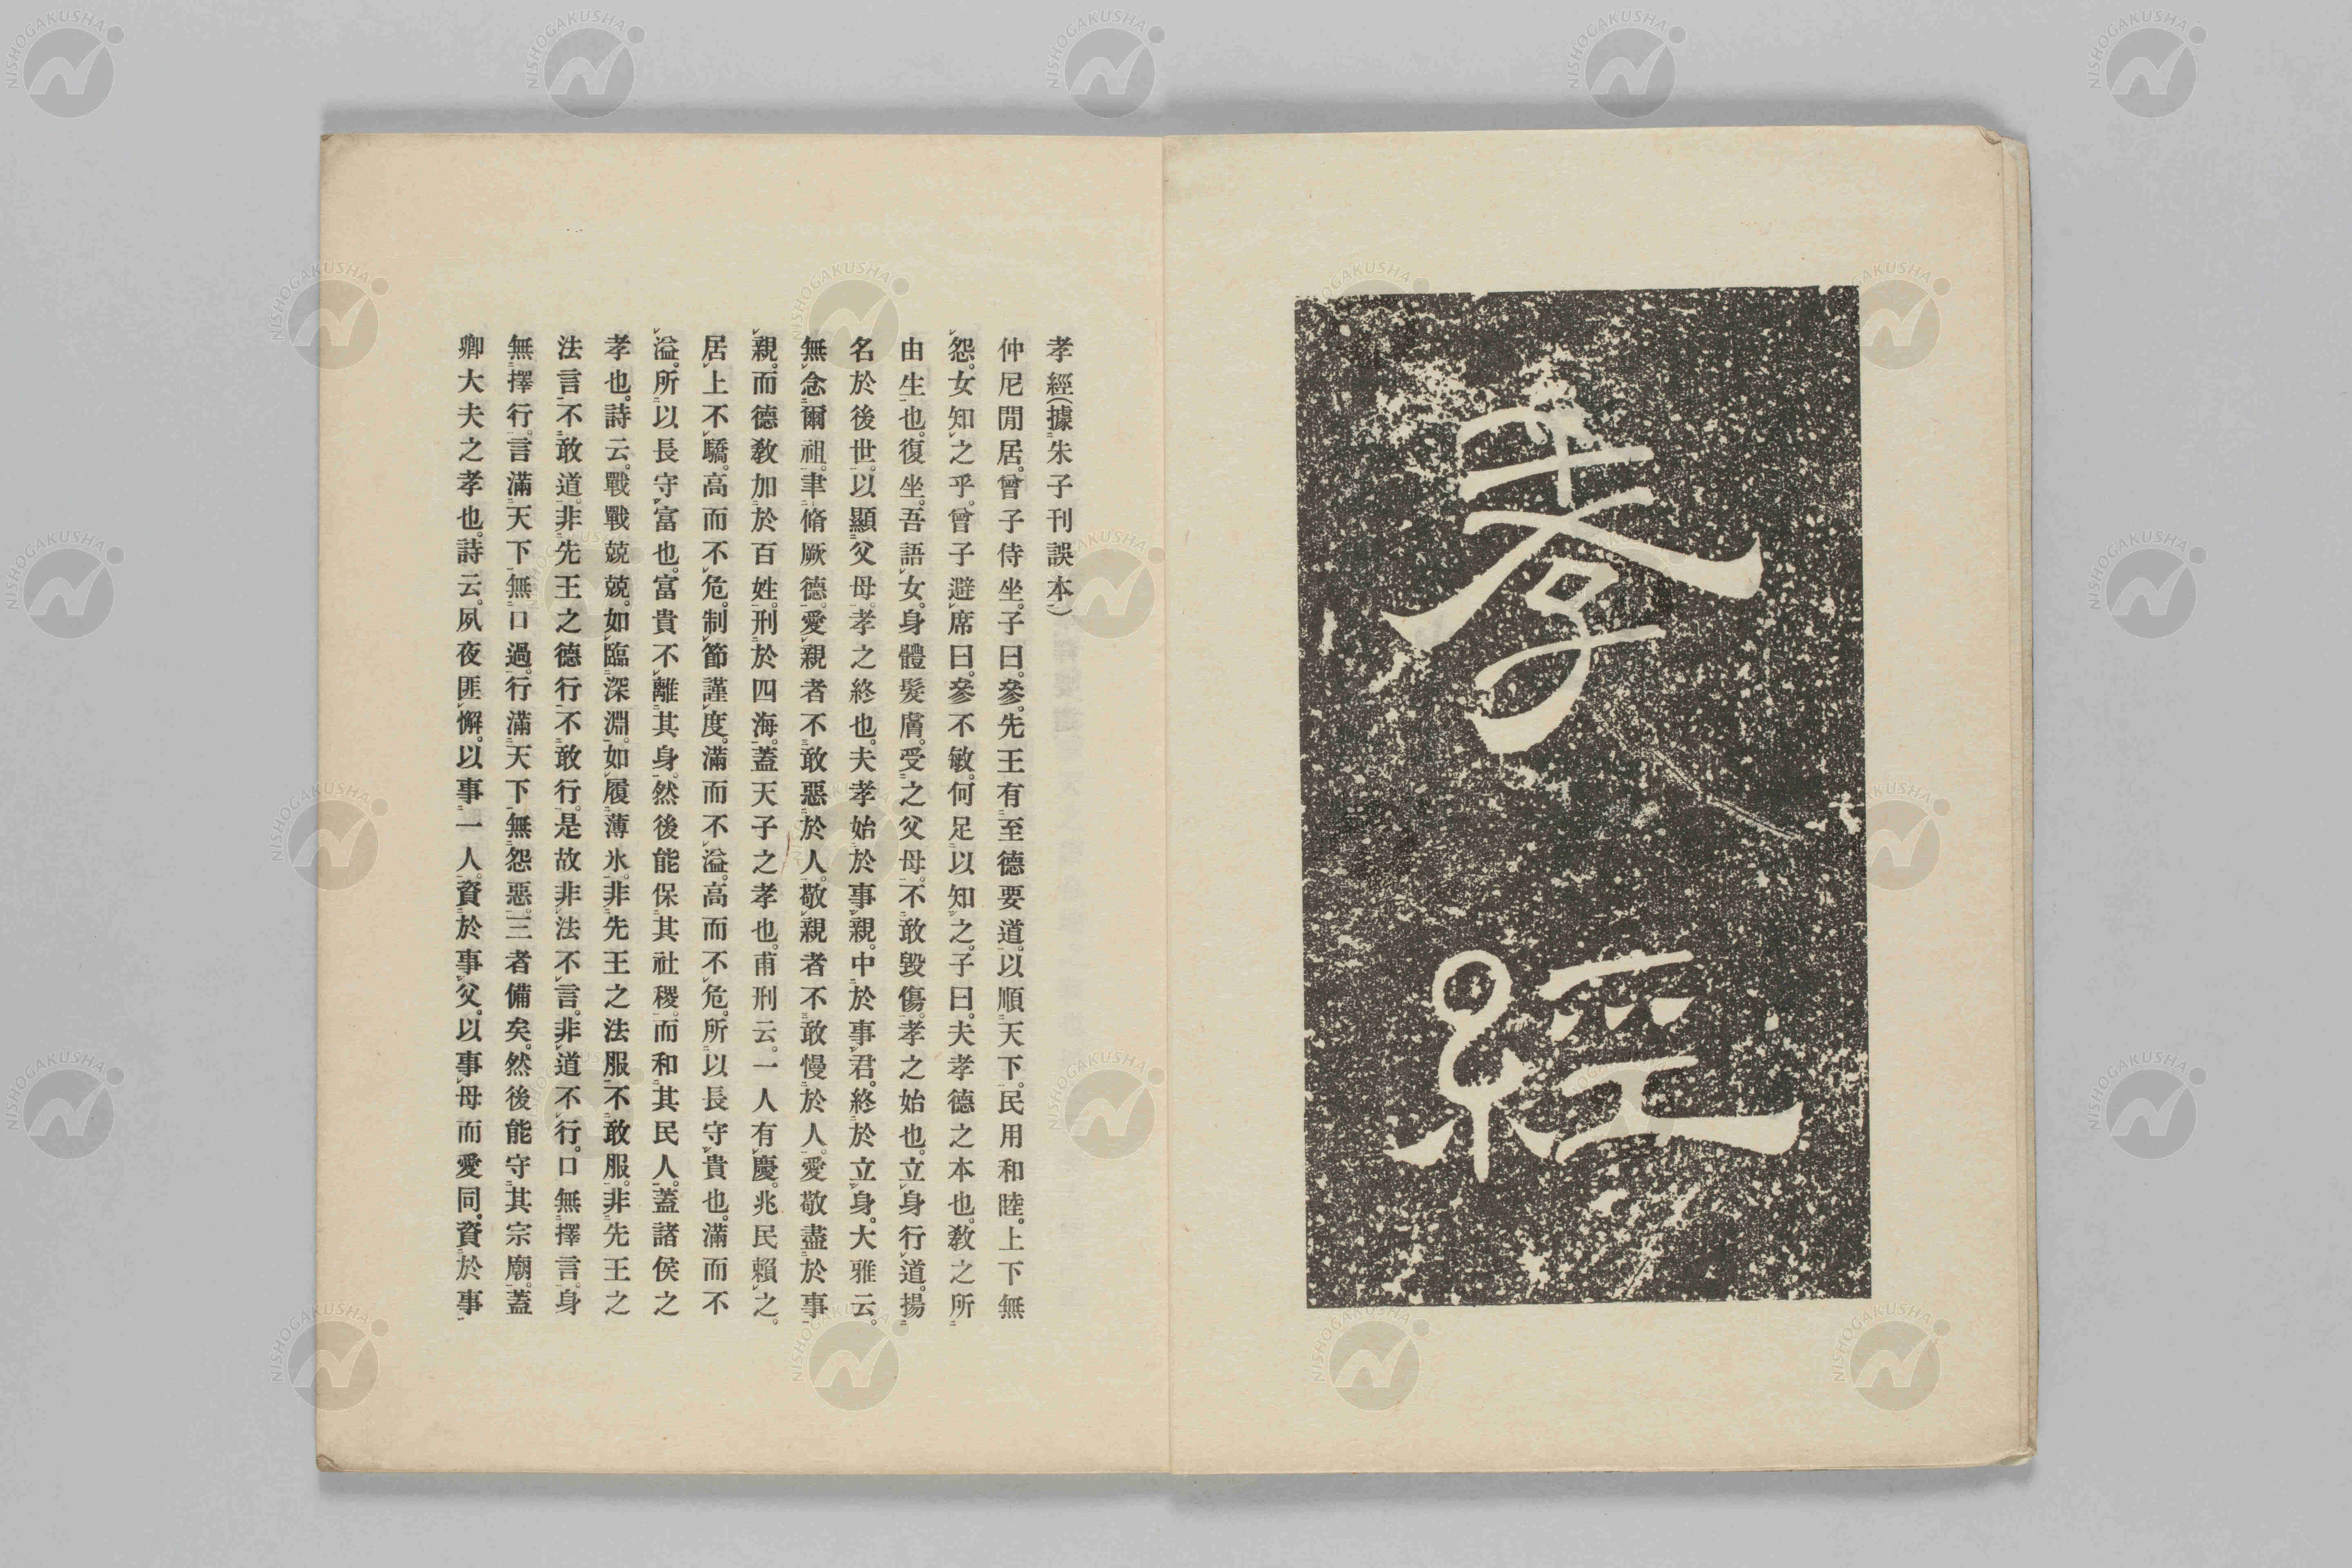 孝經
孝經(據朱子刊誤本)
仲尼閒居。曾子侍坐。子曰。參。先王有至德要道。以順天下。民用和睦。上下無
怨。女知之乎。曾子避席曰。參不敏。何足以知之。子曰。夫孝德之本也。敎之所
由生也。復坐。吾語女。身體髮膚。受之父母。不敢毀傷。孝之始也。立身行道。揚
名於後世。以顯父母。孝之終也。夫孝始於事親。中於事君。終於立身。大雅云。
無念爾祖。聿脩厥德。愛親者不敢惡於人。敬親者不敢慢於人。愛敬盡於事
親。而德敎加於百姓。刑於四海。蓋天子之孝也。甫刑云。一人有慶。兆民賴之。
居上不驕。高而不危。制節謹度。滿而不溢。高而不危。所以長守貴也。滿而不
溢。所以長守富也。富貴不離其身。然後能保其社稷。而和其民人。蓋諸侯之
孝也。詩云。戰戰兢兢。如臨深淵。如履薄氷。非先王之法服不敢服。非先王之
法言不敢道。非先王之德行不敢行。是故非法不言。非道不行。口無擇言。身
無擇行。言滿天下無口過。行滿天下無怨惡。三者備矣。然後能守其宗廟。蓋
卿大夫之孝也。詩云。夙夜匪懈。以事一人。資於事父。以事母而愛同。資於事
NISHOGAKUSHA